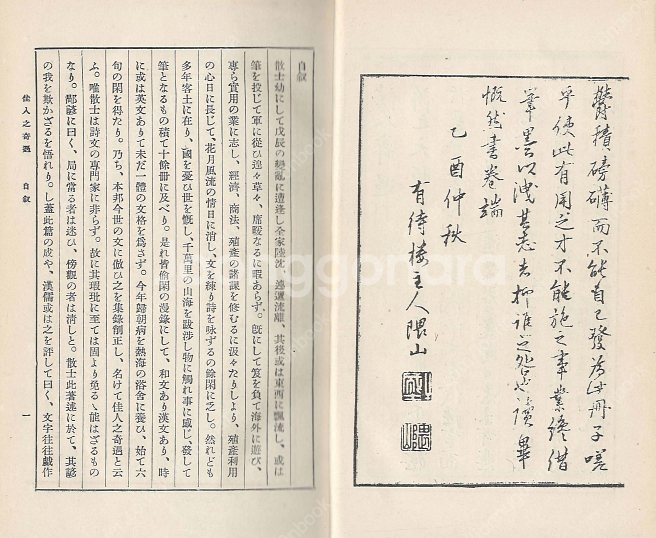 鬱積磅礴而不能自已發為此冊子嗟
乎使此有用之才不能施之事業終借
筆墨以洩其志者抑誰之咎也讀畢
慨然書卷端
乙酉仲秋
有待楼主人隈山
自叙
散士幼にして戊辰の變亂に遭逢し全家陸沈、遑遽流離、其後或は東西に飄流し、或は
筆を投じて軍に從ひ遑々草々、席暖なるに暇あらず。既にして笈を負て海外に遊び、
專ら實用の業に志し、經濟、商法、殖產の諸課を修むるに汲々たりしより、殖產利用
の心日に長じて、花月風流の情日に消し、文を練り詩を咏ずるの餘閑に乏し。然れども
多年客土に在り、國を憂ひ世を慨し、千萬里の山海を跋涉し物に觸れ事に感じ、發して
筆となるもの積て十餘冊に及べり。是れ皆偷閑の漫錄にして、和文あり漢文あり、時
に或は英文ありて未だ一體の文格を爲さず。今年歸朝病を熱海の浴舎に養ひ、始て六
旬の閑を得たり。乃ち、本邦今世の文に倣ひ之を集錄削正し、名けて佳人之奇遇と云
ふ。唯散士は詩文の專門家に非らず。故に其瑕玼に至ては固より免るゝ能はざるもの
なり。鄙諺に曰く、局に當る者は迷ひ、傍觀の者は清しと。散士此著述に於て、其諺
の我を欺かざるを悟れり。し蓋此篇の成や、漢儒或は之を評して曰く、文字往往戲作
佳人之奇遇 自叙 一